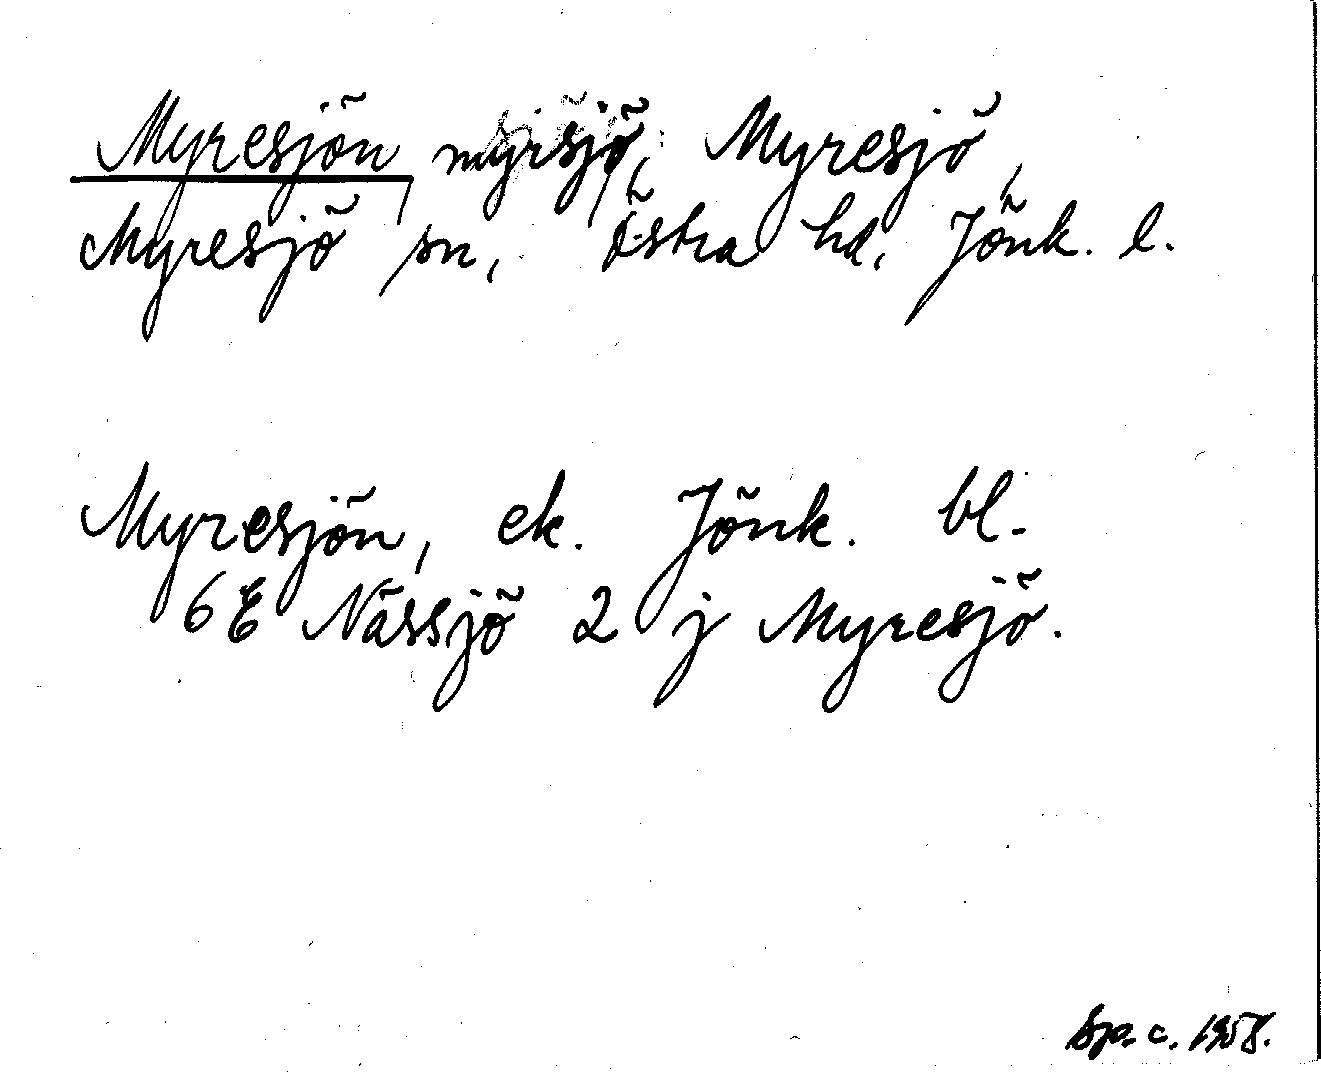 Myresjön, myrsjö, Myresjö,
Myresjö sn, Östra hd, Jönk. l.
Myresjön, ek. Jönk. bl.
6E Nässjö 2 j Myresjö.
c. 1958.